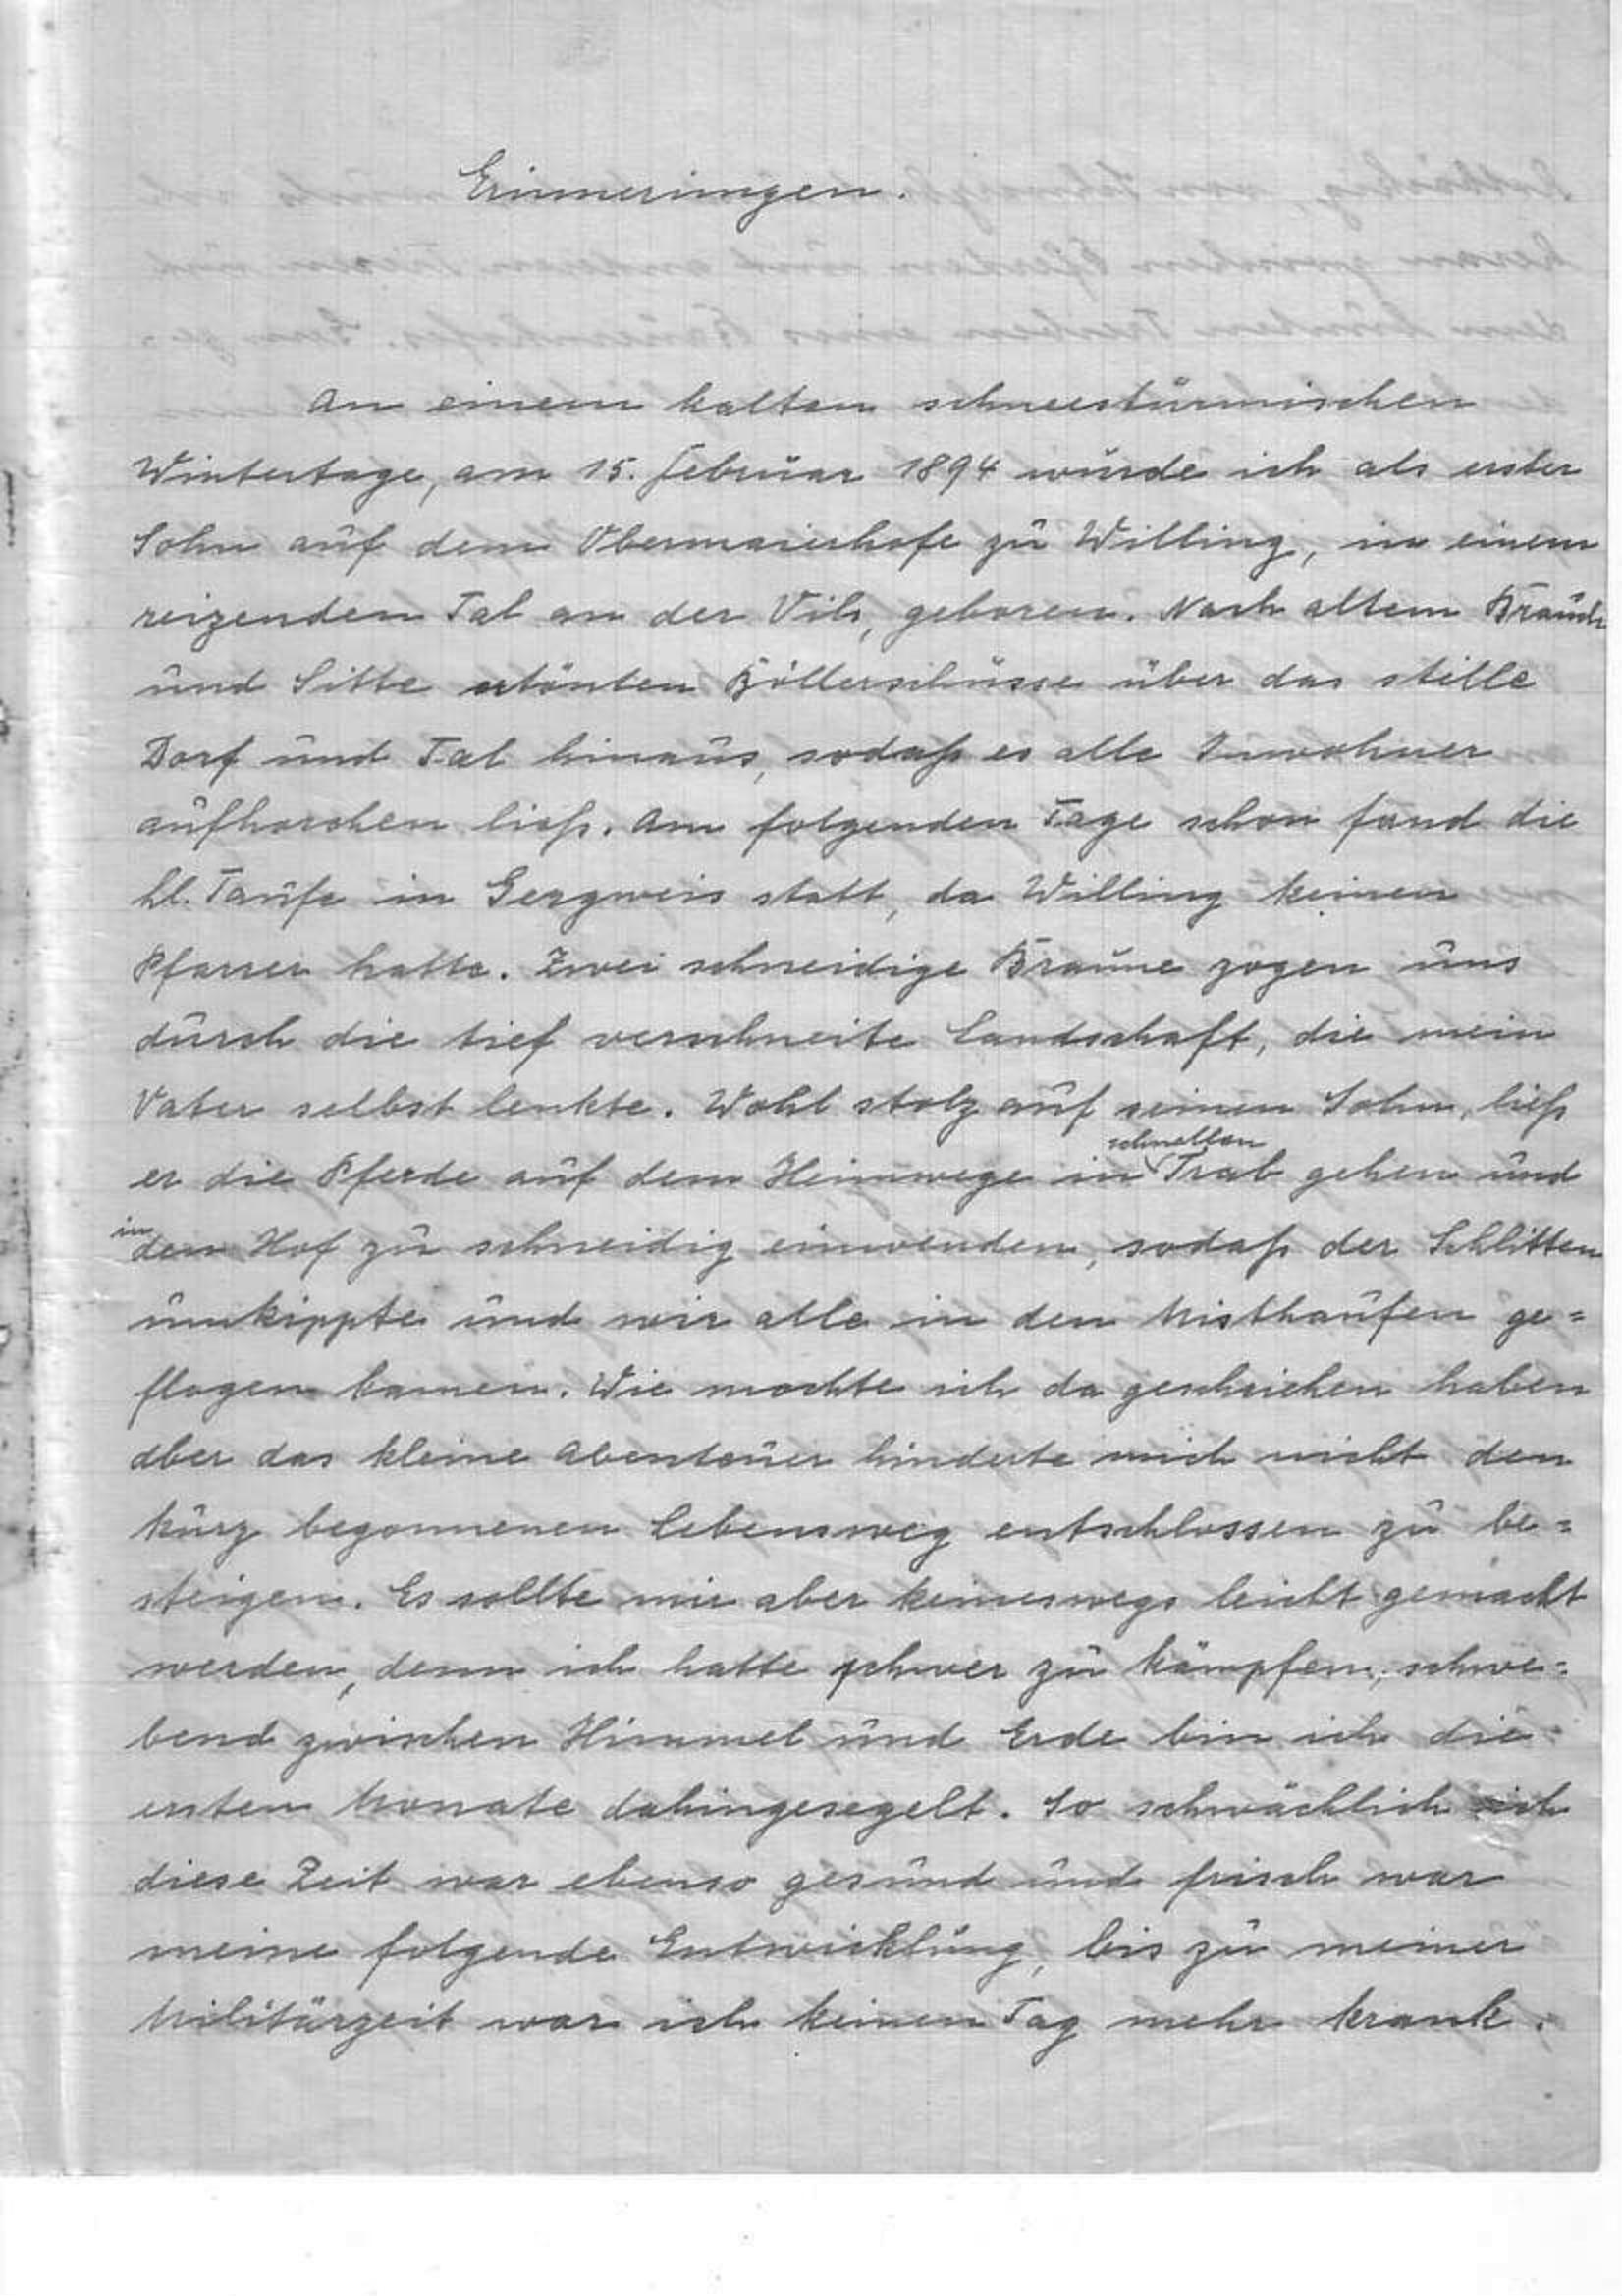 Erinnerungen.
An einem kalten schneestürmischen
Wintertage, am 15. Februar 1894 wurde ich als erster
Sohn auf dem Obermaierhofe zu Willing, in einem
reizenden Tal an der Vils, geboren. Nach altem Brauch
und Sitte ertönten Böllerschüsse über das stille
Dorf und Tal hinaus, sodaß es alle Inwohner
aufhorchen ließ. Am folgenden Tage schon fand die
hl. Taufe in Gergweis statt, da Willing keinen
Pfarrer hatte. Zwei schneidige Braune zogen uns
durch die tief verschneite Landschaft, die mein
Vater selbst lenkte. Wohl stolz auf seinen Sohn, ließ
er die Pferde auf dem Heimwege in schnellen Trab gehen und
in den Hof zu schneidig einwenden, sodaß der Schlitten
umkippte und wir alle in den Misthaufen ge=
flogen kamen. Wie mochte ich da geschrichen haben
aber das kleine Abenteuer hinderte mich nicht den
kurz begonnenen Lebensweg entschlossen zu be=
steigen. Es sollte mir aber keineswegs leicht gemacht
werden, denn ich hatte schwer zu kämpfen, schwe=
bend zwischen Himmel und Erde bin ich die
ersten Monate dahingesegelt. So schwächlich ich
diese Zeit war ebenso gesund und frisch war
meine folgende Entwicklung, bis zu meiner
Militärzeit war ich keinen Tag mehr krank.